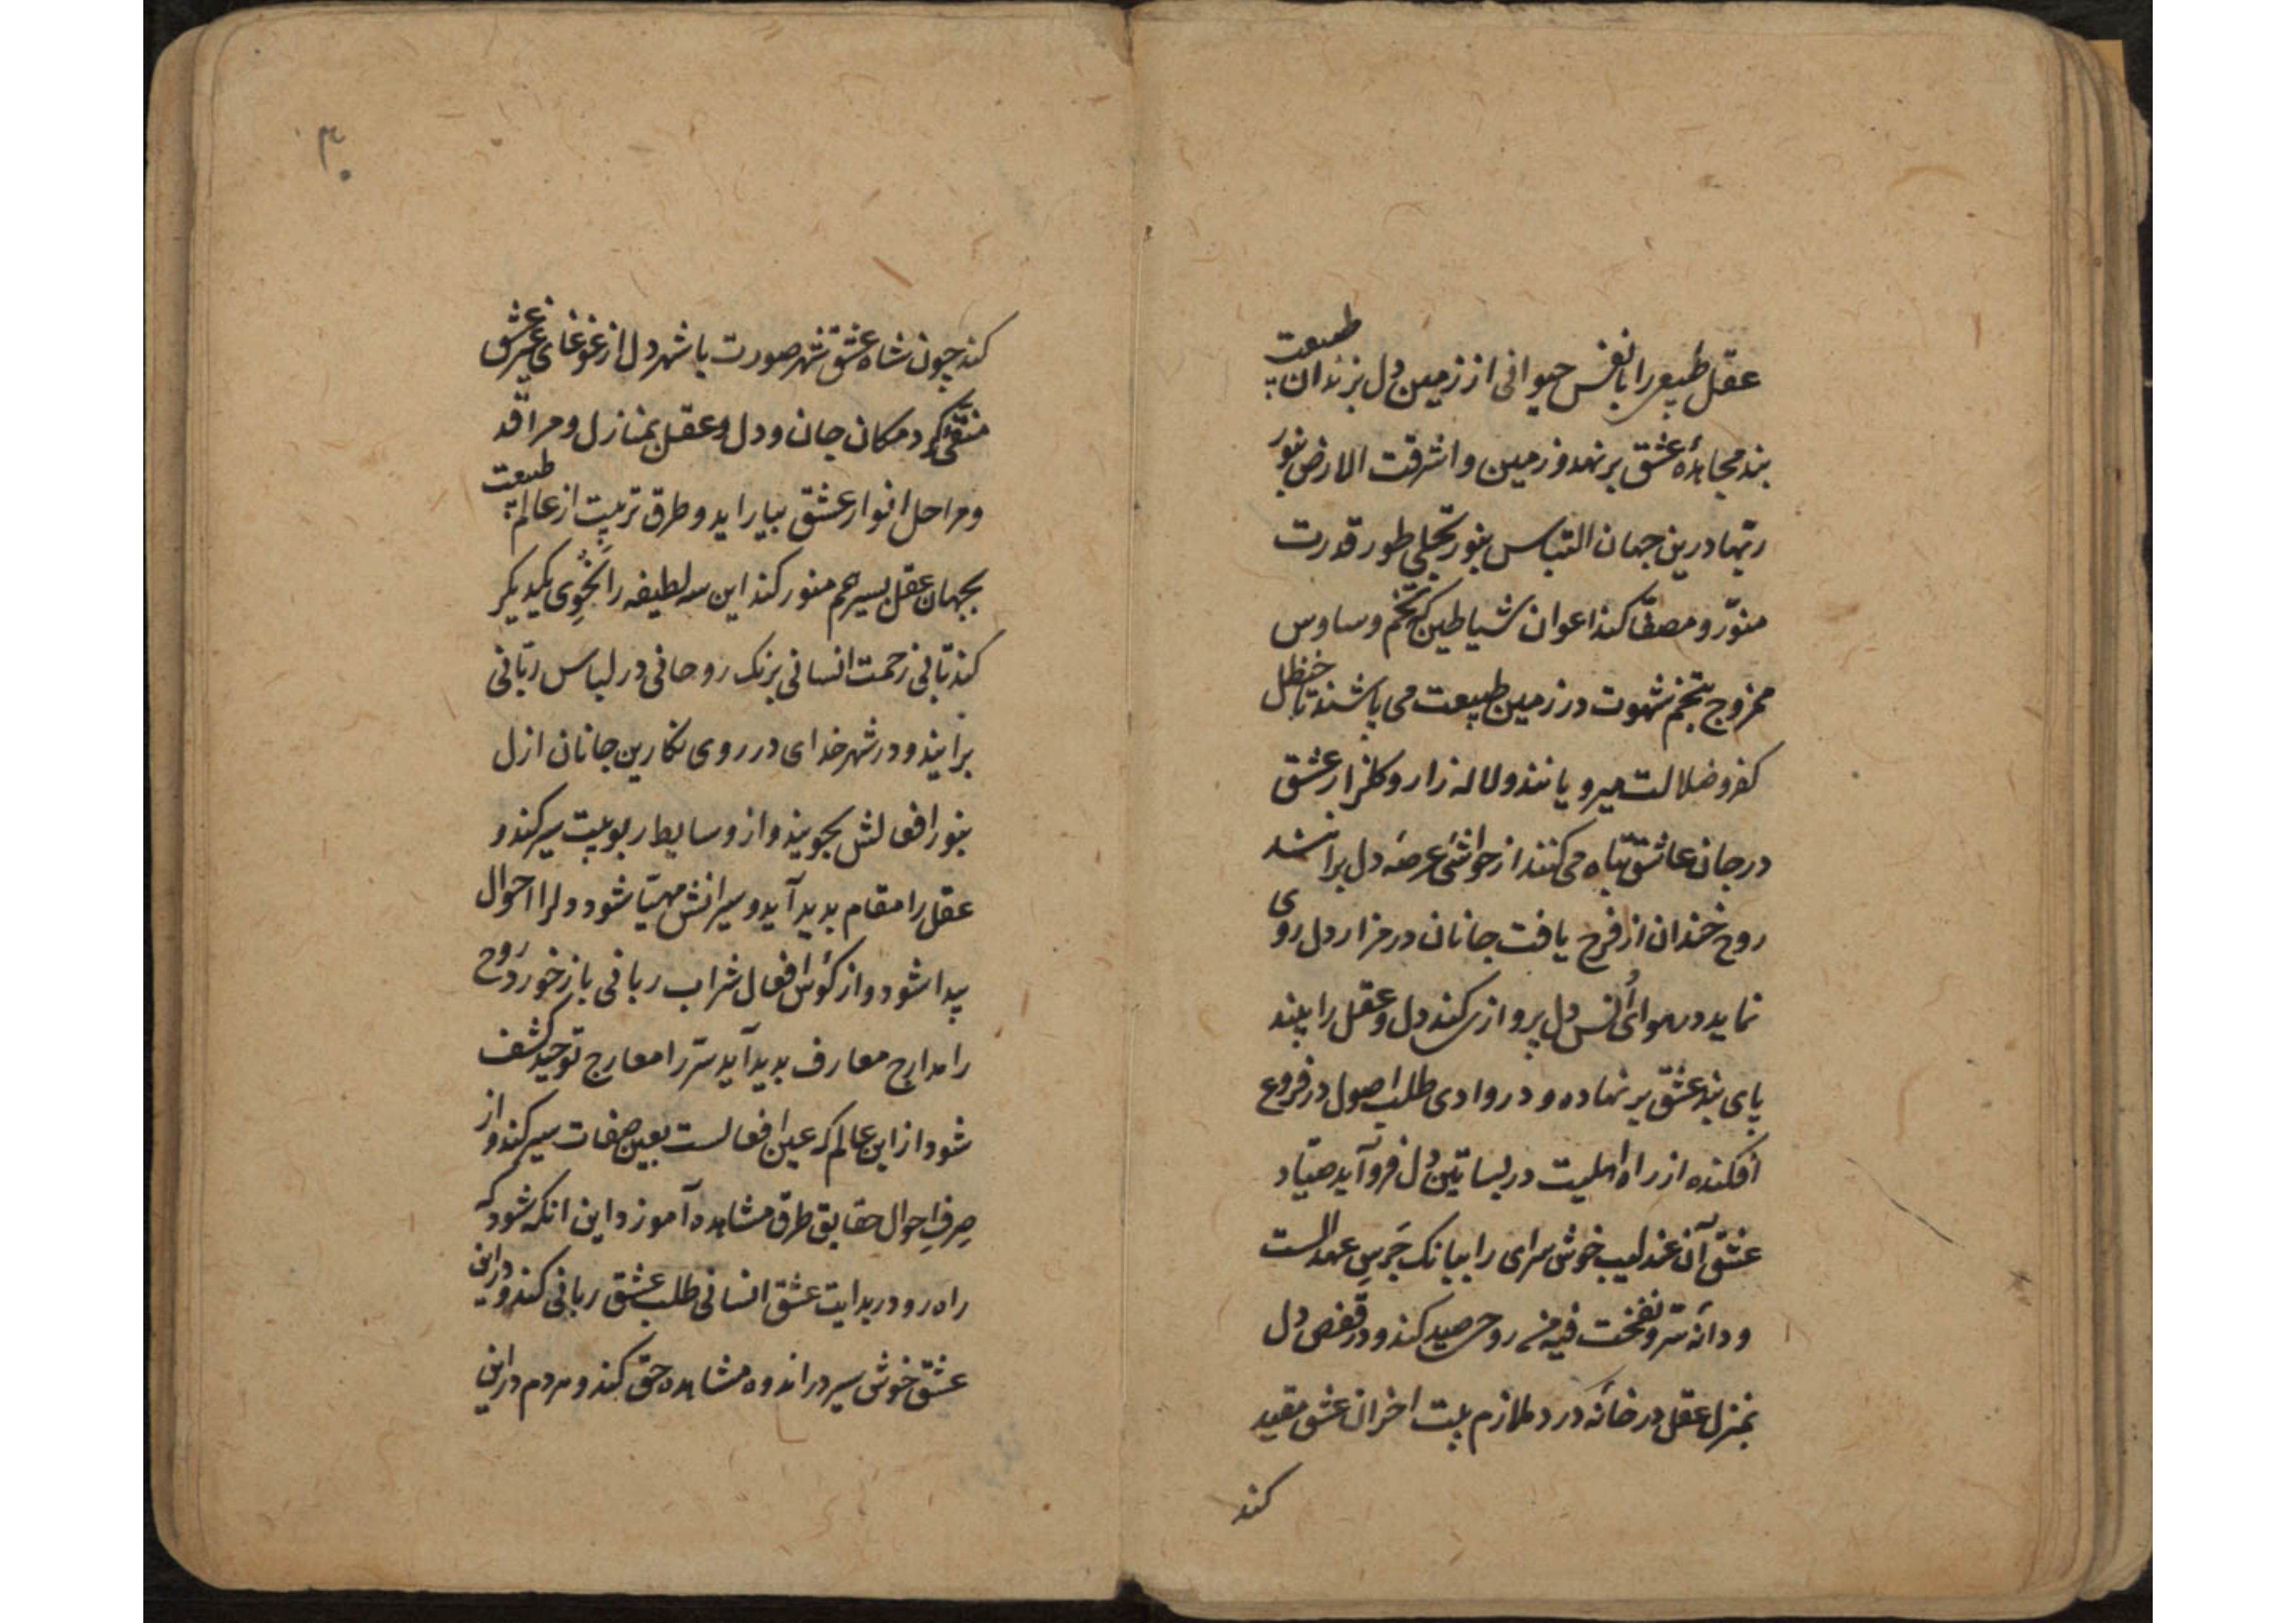 عقل طبیعی را با نفس حیوانی از زمین دل بزندان طبیعت
بند مجاهدهٔ عشق برنهد و زمین و اشرقت الارض بنور
ربّها درین جهان التباس بنور تجلی طور قدرت
منوّر و مصفّا کند اعوان شیاطین که تخم وساوس
ممزوج بتخم شهوت در زمین طبیعت می پاشند تا حنظل
کفر و ضلالت میرویانند و لاله زار و گلزار عشق
در جان عاشق تباه می کنند از حواشی عرصهٔ دل براند
روح خندان از فرح یافت جانان در مزار دل روی
نماید در هوای اُنس دل پروازی کند دل و عقل را بیند
پای بند عشق بر نهاده و در وادی طلب اصول در فروع
افکنده از راه اهلیت در بساتین دل فرو آید صیّاد
عشق آن عندلیب خوش سرای را ببانک جَرَسِ عهد الست
و دانهٔ سرّ و نفخت فیه من روحی صید کند و در قفص دل
بمنزل عقل در خانهٔ درد ملازم بیت احزان عشق مقید
کند
۳۰
کند چون شاه عشق شهر صورت با شهر دل از غوغای غیر عشق
منقّی کرد مکان جان و دل و عقل بمنازل و مراقد
و مراحل انوار عشق بیاراید و طرق تربیت از عالم طبیعت
بجهان عقل بسیر هم منور کند این سه لطیفه را بخوی یکدیگر
کند تا بی زحمت انسانی برنک روحانی در لباس ربّانی
برایند و در شهر خدای در روی نکارین جانان ازل
بنور افعالش بجویند و از وسایط ربوبیت سیر کند و
عقل را مقام بدید آید و سیرانش مهیّا شود دلرا احوال
پیدا شود و از کوس افعال شراب ربانی باز خورد روح
را مدارج معارف بدید آید سرّ را معارج توحید کشف
شود از این عالم که عین افعالست بعین صفات سیر کند و از
صِرفِ احوال حقایق طرق مشاهده آموزد این انکه شود که
راه رو در بدایت عشق انسانی طلب عشق ربانی کند و در این
عشق خوش سیر در اندوه مشاهده حق کند و مردم در این